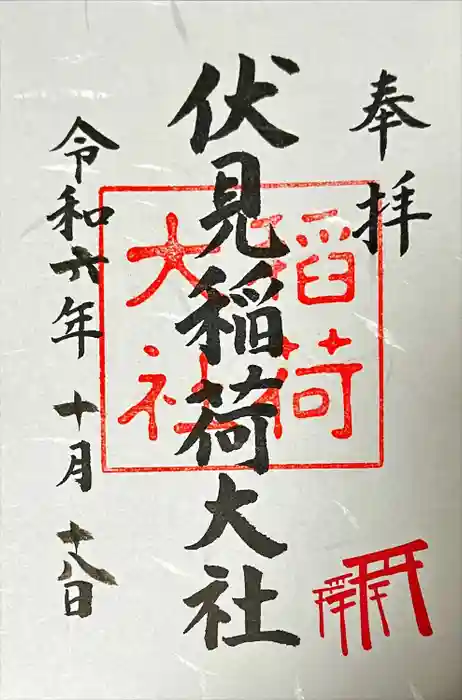 奉拝
伏見稲荷大社
稲荷
大社
令和六年十月十八日